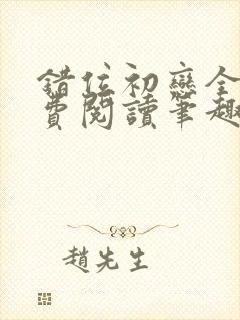 錯位初戀全
費閱讀筆趣
趙先生